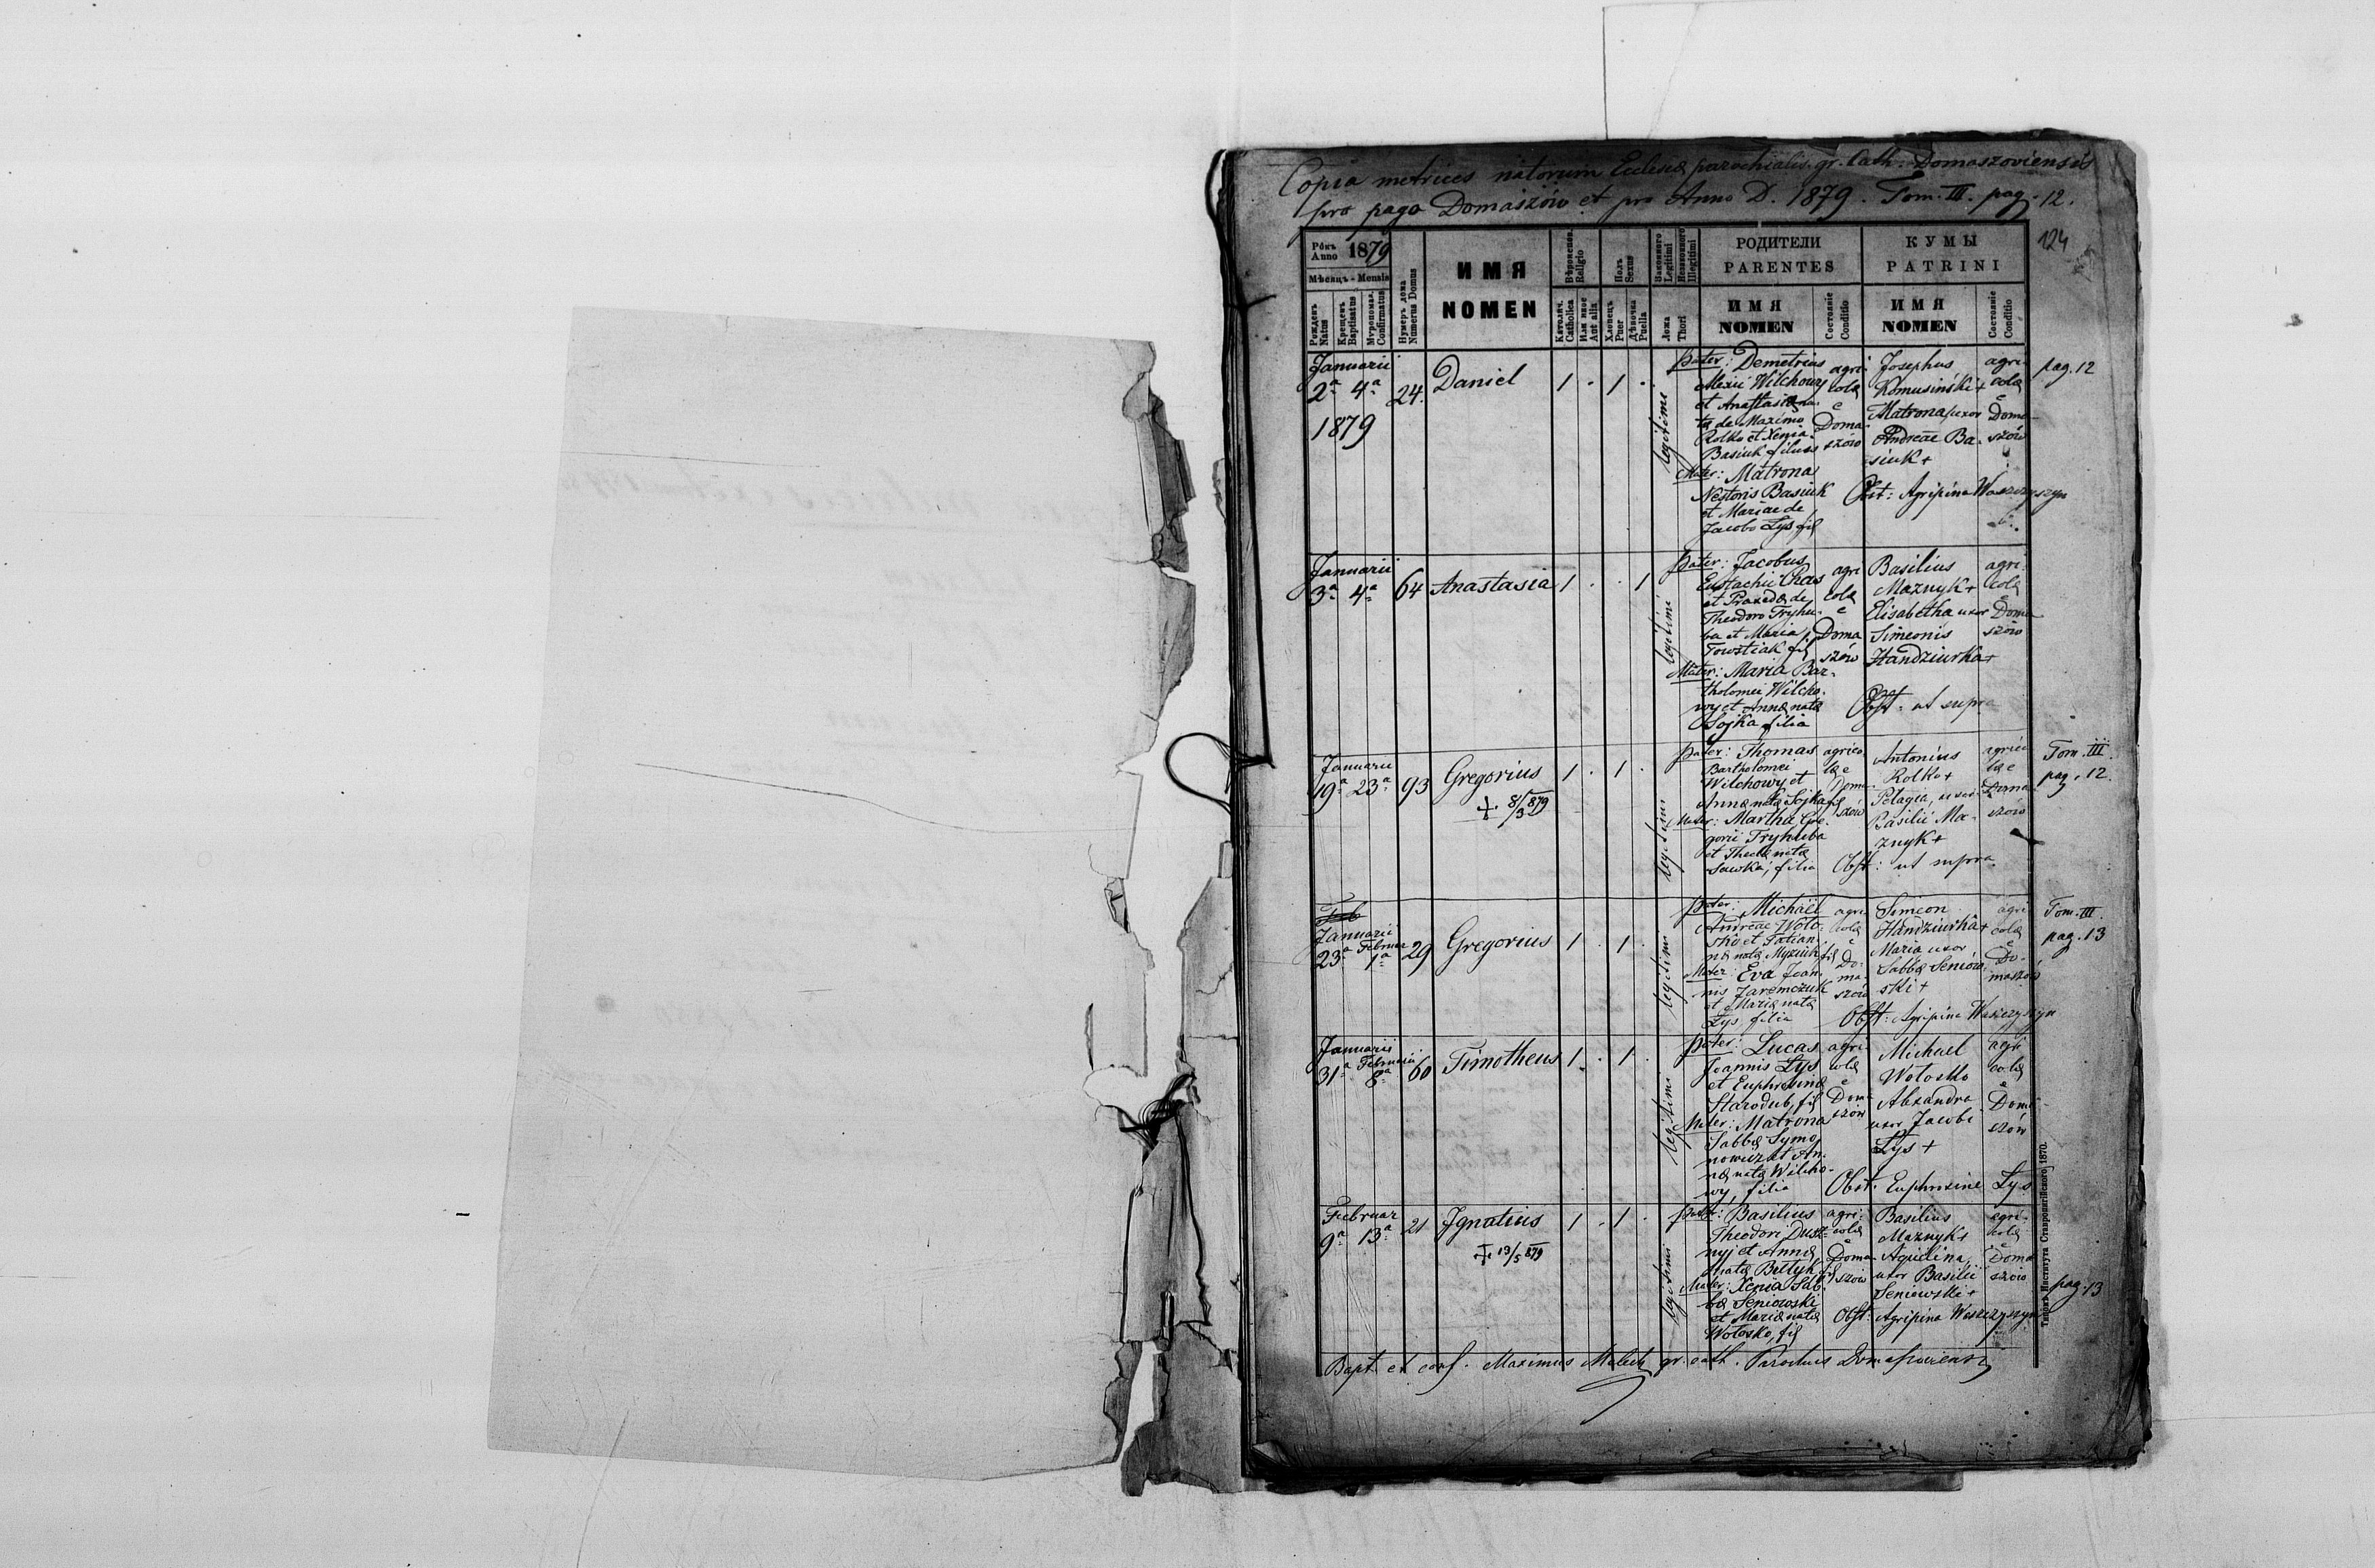 Copia metrices natorum Ecclesiæ parochialis gr. Cath: Domaszoviensis
pro pago Domaszów et pro Anno D. 1879. Tom. III. pag. 12.
124
Рôкъ Anno 1879
Мѣсяцъ - Mensis
Рожденъ Natus
Крещенъ Baptisatus
Мѵропомаз. Confirmatus
Нумеръ дома Numerus Domus
ИМЯ
NOMEN
Вѣроиспов. Religio
Католич. Catholica
Или иное Aut alia
Полъ Sexus
Хлопецъ Puer
Дѣвочка Puella
Законного Legitimi
Незаконного Illegitimi
Ложа Thori
РОДИТЕЛИ
PARENTES
ИМЯ
NOMEN
Состояніе Conditio
КУМЫ
PATRINI
ИМЯ
NOMEN
Состояніе Conditio
Januarii
2ª 4ª 24. Daniel 1 . 1 .
1879
legitimi
pater: Demetrius
Alexii Wilchowy
et Anastasiæ na-
tæ de Maximo
Rolko et Xenia
Basiuk filius
Mater: Matrona
Nestoris Basiuk
et Mariae de
Jacobo Lys fil
agri
colæ
e
Doma
szów
Josephus
Komusiński +
Matrona, uxor
Andreae Ba-
siuk +
agri
colæ
e
Doma-
szów
Obst: Agripina Waszczyszyn
pag. 12
Januarii
3ª 4ª 64 Anastasia 1 . . 1
legitimi
pater: Jacobus
Eustachii Chas
et Praxedæ de
Theodoro Tryhu-
ba et Maria
Towstiak fil
Mater: Maria Bar-
tholomei Wilcho-
wy et Annæ natæ
Sojka filia
agri
colæ
e
Doma
szów
Basilius
Maznyk +
Elisabetha uxor
Simeonis
Handziurka +
agri
colæ
e
Doma
szów
Obst: ut supra
Januarii
19ª 23ª 93 Gregorius 1 . 1 .
+ 8/3 879
legitimi
pater: Thomas
Bartholomei
Wilchowy et
Annæ natæ Sojka fil
Mater: Martha Gre-
gorii Tryhuba
et Theclæ natæ
Sawka, filia
agrico
læ e
Doma-
szów
Antonius
Rolko +
Pelagia, uxor
Basilii Ma-
znyk +
agrico
læ e
Doma
szów
Obst: ut supra
Tom. III.
pag. 12.
Januarii Februar
23ª 1ª 29 Gregorius 1 . 1 .
legitimi
pater: Michaël
Andreae Woło-
sko et Tatian-
næ natæ Myziuk fil
Mater: Eva Joan-
nis Jaremczuk
et Mariæ natæ
Lys filia
agri
colæ
e
Do-
ma-
szów
Simeon
Handziurka +
Maria uxor
Sabbæ Seniow-
ski +
agri
colæ
e
Do-
maszów
Obst: Agripina Waszczyszyn
Tom. III.
pag. 13
Januarii Februarii
31ª 8ª 60 Timotheus 1 . 1 .
legitimi
pater: Lucas
Joannis Lys
et Euphrosinæ
Starodub, fil
Mater: Matrona
Sabbæ Symo
nowicz et An-
næ natæ Wilcho-
wy, filia
agri
colæ
e
Doma
szów
Michael
Wołosko
Alexandra
uxor Jacobi
Lys +
agri
colæ
e
Doma
szów
Obst: Euphrosine Lys
Februar
9ª 13ª 21 Ignatius 1 . 1 .
+ 13/5 879
legitimi
pater: Basilius
Theodori Dusz-
nyj et Annæ
natæ Bełtyk fil
Mater: Xenia Sab-
bæ Seniowski
et Mariæ natæ
Wołosko, fil
agri
colæ
e
Doma
szów
Basilius
Maznyk +
Aquilina,
uxor Basilii
Seniewski +
agri-
colæ
e
Doma
szów
Obst: Agripina Waszczyszyn
pag. 13
Bapt. et conf. Maximus gr. cath. Parochus Domaszoviensis
Типомъ Института Ставропигійского 1870.